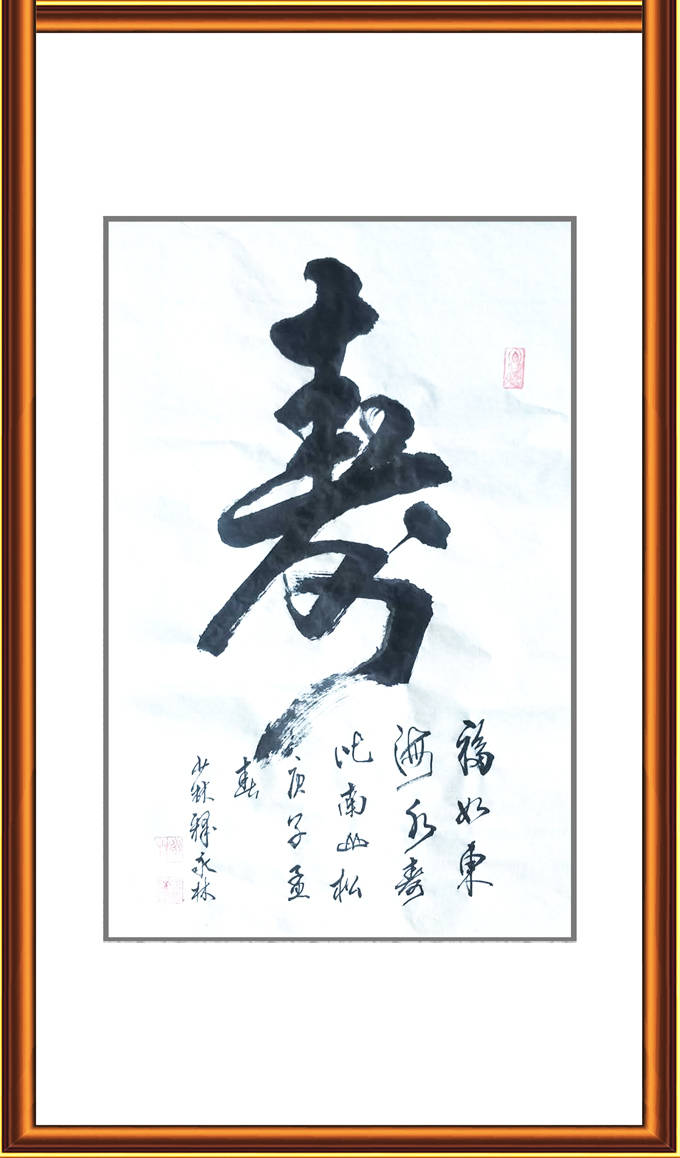 寿
福如東
海水寿
比南山松
庚子孟
春
少林释永林